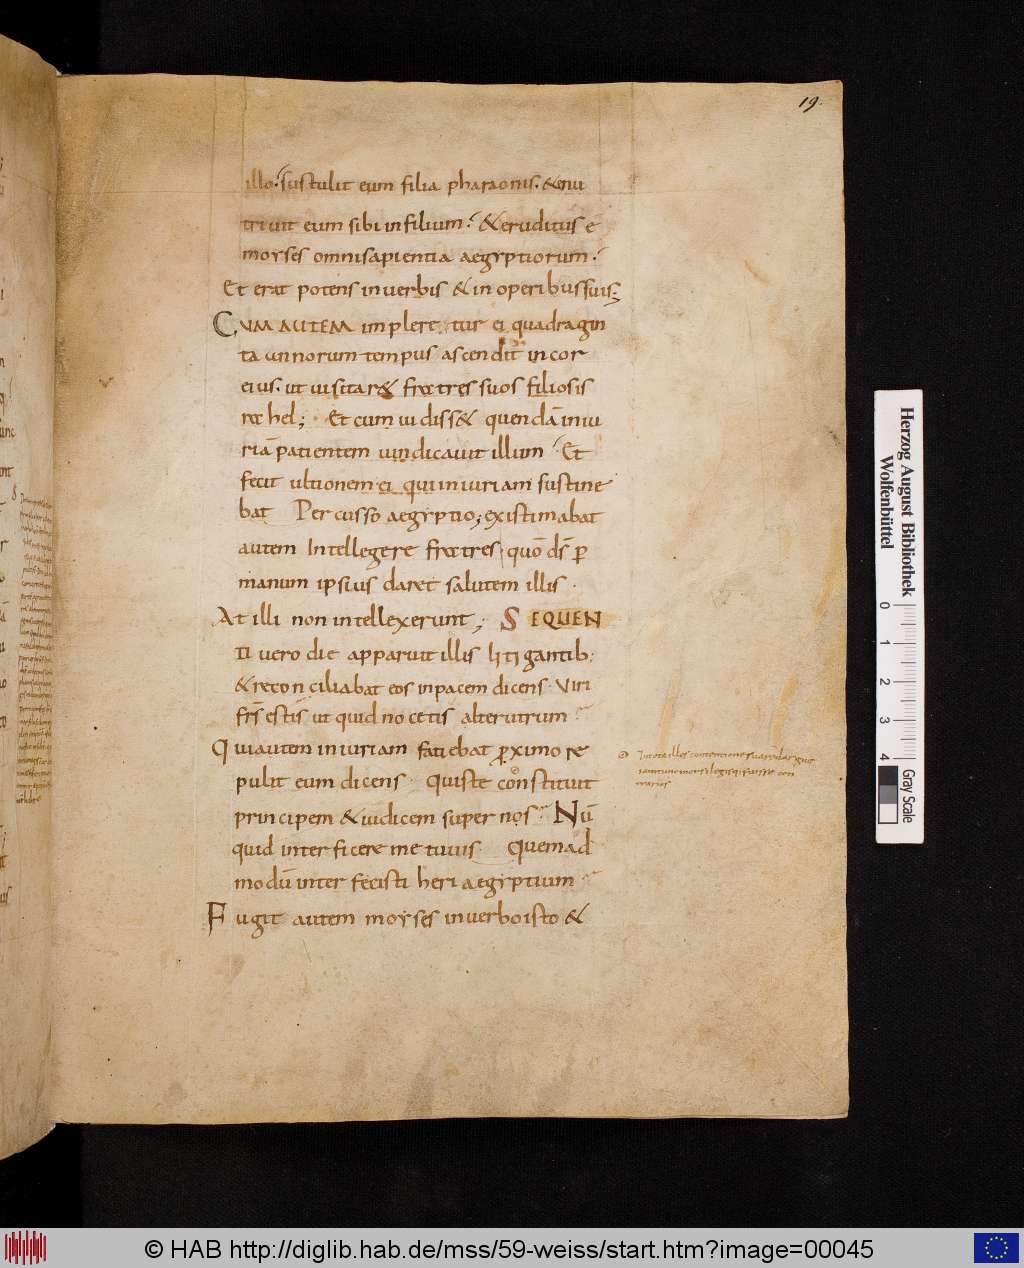 19.
illo. sustulit eum filia pharaonis. & nu
triuit eum sibi in filium. & eruditus e
moyses omni sapientia aegyptiorum.
Et erat potens in uerbis & in operibus suis;
CUM AUTEM impleretur ei quadragin
ta annorum tempus ascendit in cor
eius. ut uisitar& fratres suos filios is
rahel; Et cum uidiss& quendā iniu
riā patientem uindicauit illum. Et
fecit ultionem ei qui iniuriam sustine
bat Percusso aegyptio; existimabat
autem Intellegere fratres, quō ds̄ ꝑ
manum ipsius daret salutem illis.
At illi non intellexerunt; SEQUEN
TI uero die apparuit illis litigantib:
& reconciliabat eos in pacem dicens. Viri
frs̄ estis ut quid nocetis alterutrum
Qui autem iniuriam faciebat ꝓximo re
pulit eum dicens. Quis te constituit
principem & iudicem super nos. Nū
quid interficere me tu uis. Quemad
modū interfecisti heri aegyptium
Fugit autem moyses in uerbo isto &
Herzog August Bibliothek
Wolfenbüttel
0 1 2 3 4
Gray Scale
© HAB http://diglib.hab.de/mss/59-weiss/start.htm?image=00045